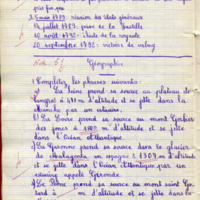 pas fin
3. 5 mai 1789: réunion des états généraux
14 juillet 1789: prise de la Bastille
10 août 1792: chute de la royauté
20 septembre 1792: victoire de valmy
Géographie
1 Complétez les phrases suivantes
a) La Seine prend sa source au plateau de
langres à 471 m d'altitude et se jette dans la
Manche par un estuaire.
La Loire prend sa source au Mont Gerbier
des joncs à 1400 m d'altitude et se jette dans
l'Océan Atlantique.
La Garonne prend sa source dans le glacier
de en espagne à m d'altitude
et se jette dans l'Océan Atlantique par un
estuaire appelé Gironde.
Le Rhône prend sa source au mont saint Go
tard à m d'altitude et se jette dans la